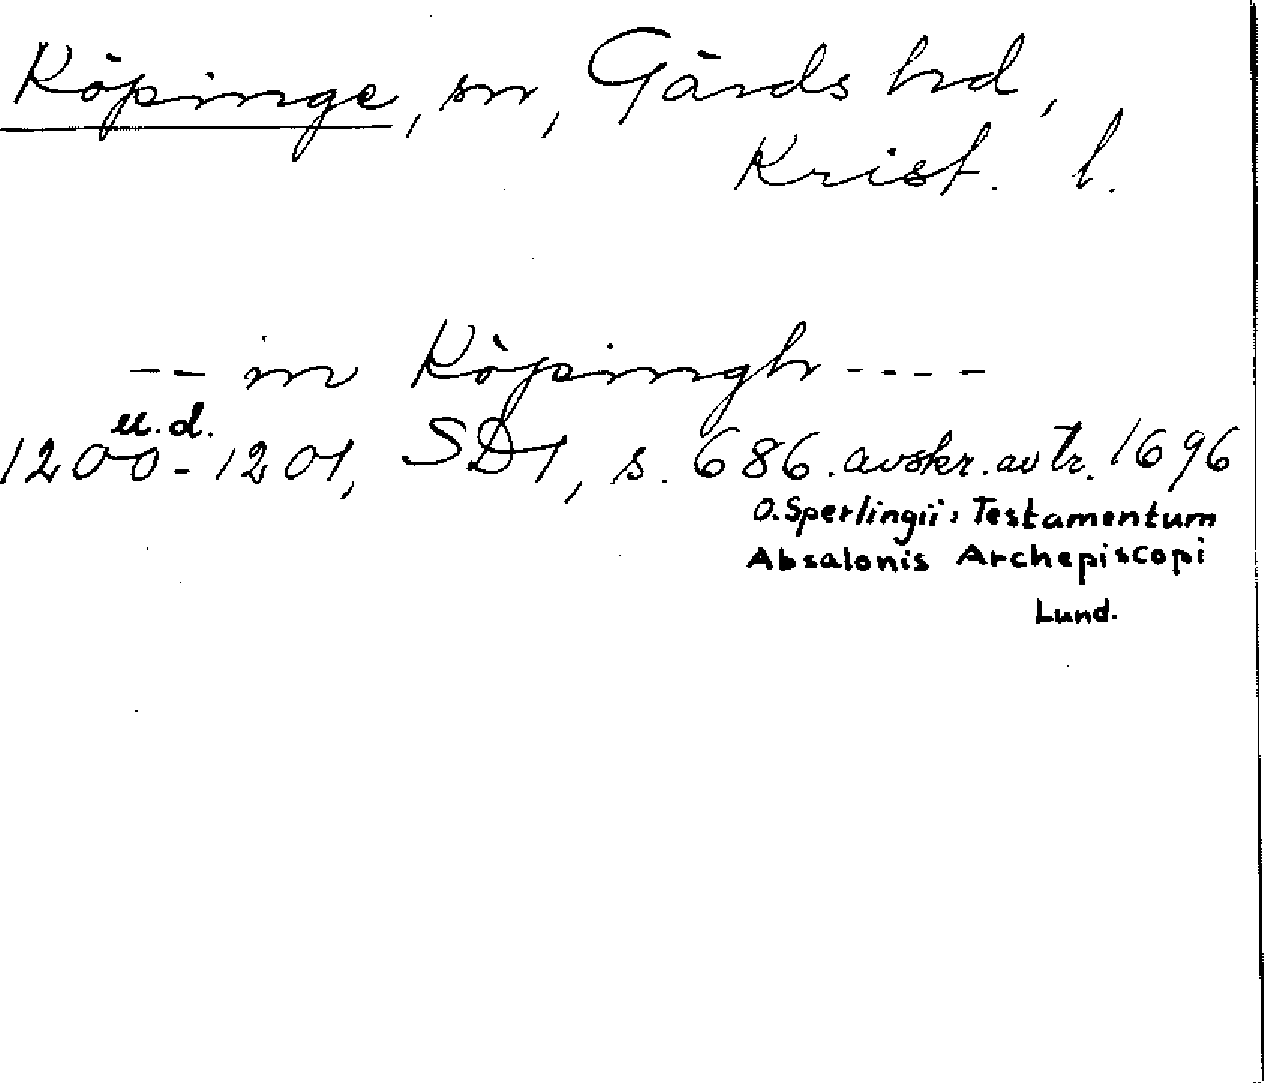 Köpinge, sn, Gärds hd,
Krist. l.
-- in Köpingh ----
u.d.
1200-1201, SD1, s. 686. avskr. av tr. 1696
O. Sperlingii: Testamentum
Absalonis Archepiscopi
Lund.